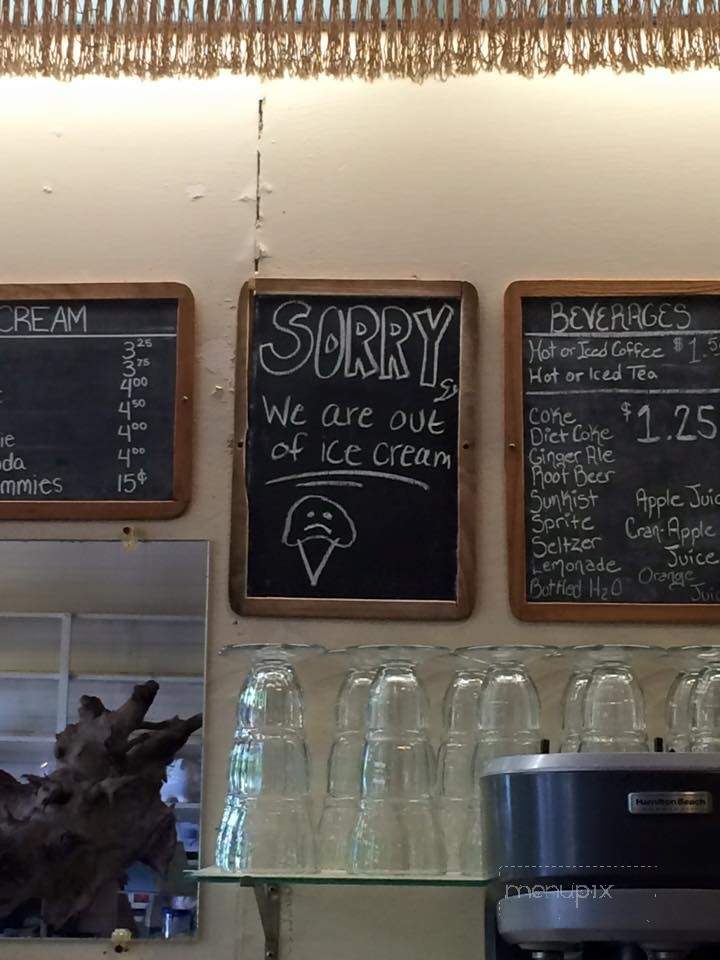 CREAM
3.25
3.75
4.00
4.50
4.00
4.00
15¢
SORRY
We are out
of ice cream
BEVERAGES
Hot or Iced Coffee $1.5
Hot or Iced Tea
Coke $1.25
Diet Coke
Ginger Ale
Root Beer
Sunkist
Sprite
Seltzer
Lemonade
Bottled H2O
Apple Juic
Cran-Apple
Juice
Orange
Jui
Hamilton Beach
menupix